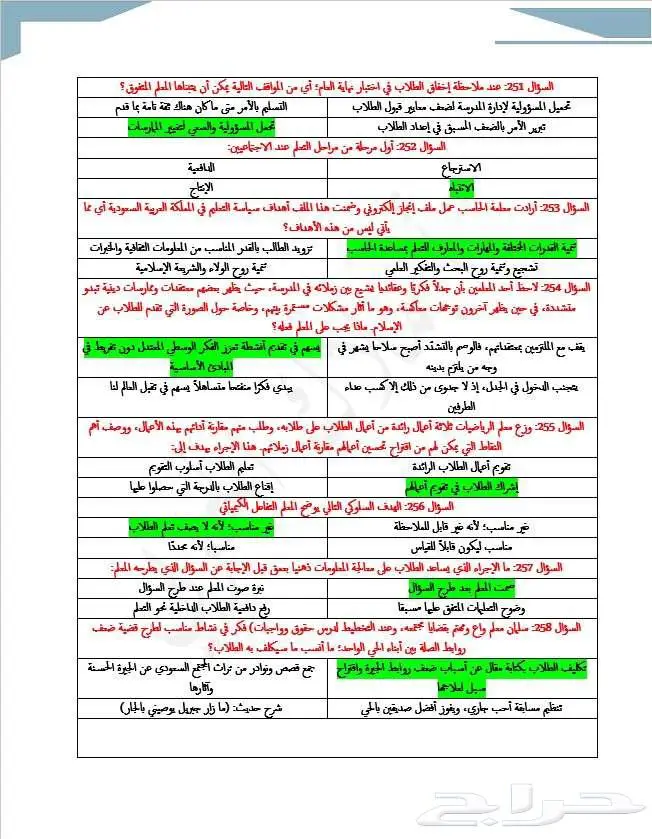 السؤال 251: عند ملاحظة إخفاق الطلاب في اختبار نهاية العام؛ أي من المواقف التالية يمكن أن يتبناها المعلم المتفوق؟
تحميل المسؤولية لإدارة المدرسة لضعف معايير قبول الطلاب
التسليم بالأمر متى ما كان هناك ثقة تامة بما قدم
تبرير الأمر بالضعف المسبق في إعداد الطلاب
تحمل المسؤولية والسعي لتغيير الممارسات
السؤال 252: أول مرحلة من مراحل التعلم عند الاجتماعيين:
الاسترجاع
الدافعية
الانتباه
الإنتاج
السؤال 253: أرادت معلمة الحاسب عمل ملف إنجاز إلكتروني وضمنت هذا الملف أهداف سياسة التعليم في المملكة العربية السعودية أي مما
يأتي ليس من هذه الأهداف؟
تنمية القدرات المختلفة والمهارات والمعارف التعلم بمساعدة الحاسب
تزويد الطالب بالقدر المناسب من المعلومات الثقافية والخبرات
تشجيع وتنمية روح البحث والتفكير العلمي
تنمية روح الولاء والشريعة الإسلامية
السؤال 254: لاحظ أحد المعلمين بأن جدلاً فكريًا وعقائديا يشيع بين زملائه في المدرسة، حيث يظهر بعضهم معتقدات وممارسات دينية تبدو
متشددة، في حين يظهر آخرون توجهات معاكسة، وهو ما آثار مشكلات مستمرة بينهم، وخاصة حول الصورة التي تقدم للطلاب عن
الإسلام. ماذا يجب على المعلم فعله؟
يقف مع الملتزمين بمعتقداتهم، فالوسم بالتشدّد أصبح سلاحا يشهر في
وجه من يلتزم بدينه
يسهم في تقديم أنشطة تعزز الفكر الوسطي المعتدل دون تفريط في
المبادئ الأساسية
يتجنب الدخول في الجدل، إذ لا جدوى من ذلك إلا كسب عداء
الطرفين
يبدي فكرًا منفتحا متساهلاً يسهم في تقبل العالم لنا
السؤال 255: وزع معلم الرياضيات ثلاثة أعمال رائدة من أعمال الطلاب على طلابه، وطلب منهم مقارنة أدائهم بهذه الأعمال، ووصف أهم
النقاط التي يمكن لهم من اقتراح تحسين أعمالهم مقارنة أعمال زملائهم. هذا الإجراء يهدف إلى:
تقويم أعمال الطلاب الرائدة
تعليم الطلاب أسلوب التقويم
إشراك الطلاب في تقويم أعمالهم
إقناع الطلاب بالدرجة التي حصلوا عليها
السؤال 256: الهدف السلوكي التالي يوضح المعلم التفاعل الكيميائي
غير مناسب؛ لأنه غير قابل للملاحظة
غير مناسب؛ لأنه لا يصف تعلم الطلاب
مناسب ليكون قابلاً للقياس
مناسبا؛ لأنه محددًا
السؤال 257: ما الإجراء الذي يساعد الطلاب على معالجة المعلومات ذهنيا بعمق قبل الإجابة عن السؤال الذي يطرحه المعلم:
صمت المعلم بعد طرح السؤال
نبرة صوت المعلم عند طرح السؤال
وضوح التعليمات المتفق عليها مسبقا
رفع دافعية الطلاب الداخلية نحو التعلم
السؤال 258: سلمان معلم واع ومهتم بقضايا مجتمعه، وعند التخطيط لدرس حقوق وواجبات) فكر في نشاط مناسب لطرح قضية ضعف
روابط الصلة بين أبناء الحي الواحد؛ ما أنسب ما سيكلف به الطلاب؟
تكليف الطلاب بكتابة مقال عن أسباب ضعف روابط الجيرة واقتراح
سبل لعلاجها
جمع قصص ونوادر من تراث المجتمع السعودي عن الجيرة الحسنة
وآثارها
تنظيم مسابقة أحب جاري، ويفوز أفضل صديقين بالحي
شرح حديث: (ما زار جبريل يوصيني بالجار)
حراج